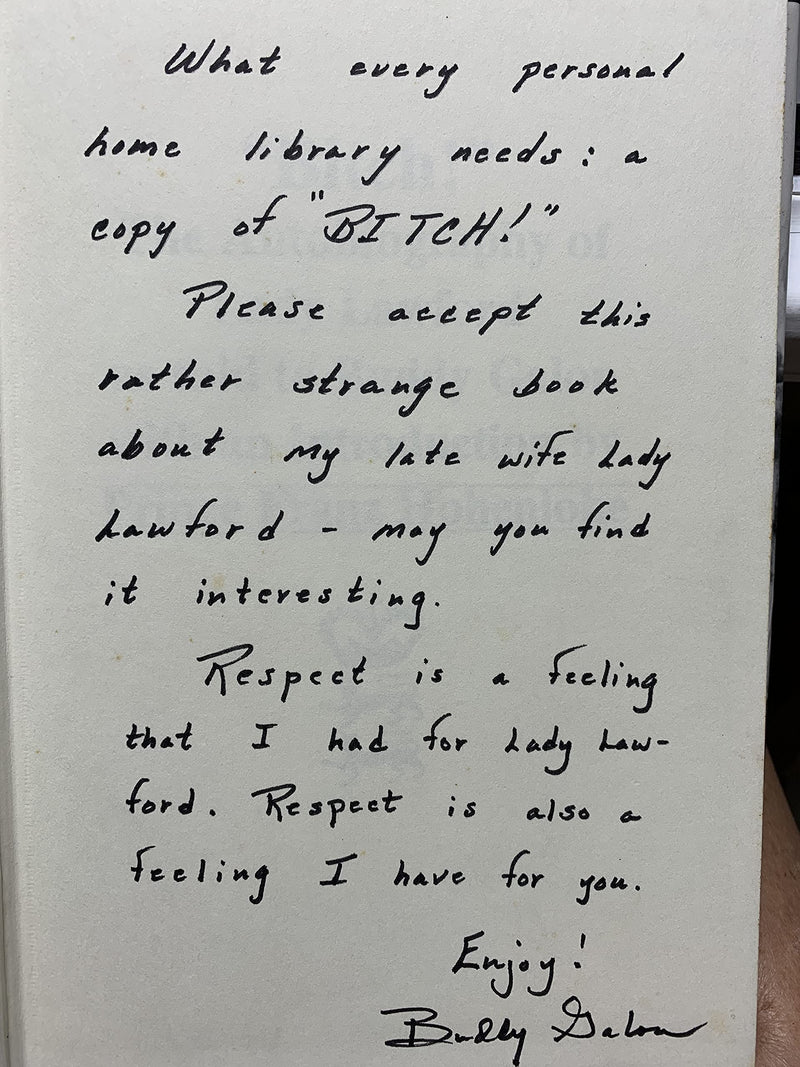 What every personal
home library needs: a
copy of "BITCH!"
Please accept this
rather strange book
about my late wife Lady
Lawford - may you find
it interesting.
Respect is a feeling
that I had for Lady Law-
ford. Respect is also a
feeling I have for you.
Enjoy!
Buddy Galon